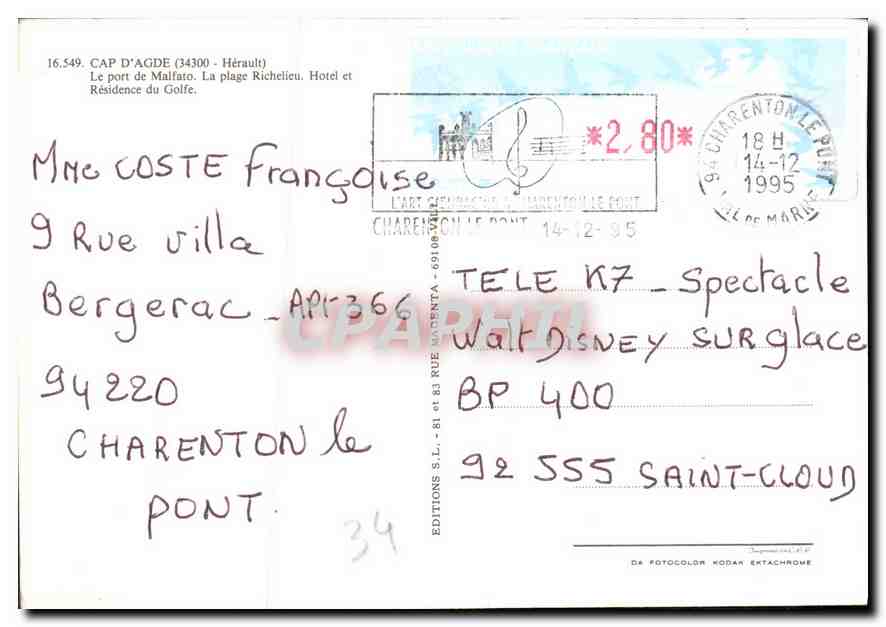 16.549. CAP D'AGDE (34300 - Hérault)
Le port de Malfato. La plage Richelieu. Hotel et
Résidence du Golfe.
*2,80*
94 CHARENTON LE PONT
18 H
14-12
1995
VAL DE MARNE
CHARENTON LE PONT 14-12-95
Mme COSTE Françoise
9 Rue villa
Bergerac - APt 366
94220
CHARENTON le
PONT.
34
EDITIONS S.L. - 81 et 83 RUE MAGENTA - 69100 VILL
TELE K7 - Spectacle
Walt DISNEY SUR glace
BP 400
92 555 SAINT-CLOUD
DA FOTOCOLOR KODAK EKTACHROME
CPAPHIL